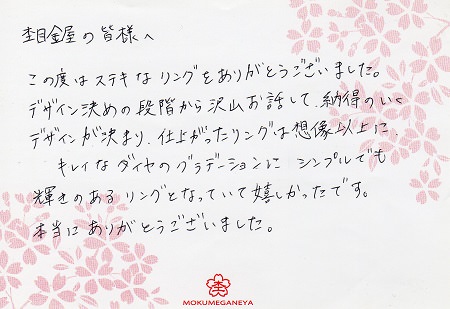 杢目金屋の皆様へ
この度はステキなリングをありがとうございました。
デザイン決めの段階から沢山お話して、納得のいく
デザインが決まり、仕上がったリングは想像以上に、
キレイなダイヤのグラデーションに シンプルでも
輝きのあるリングとなっていて嬉しかったです。
本当にありがとうございました。
杢
MOKUMEGANEYA